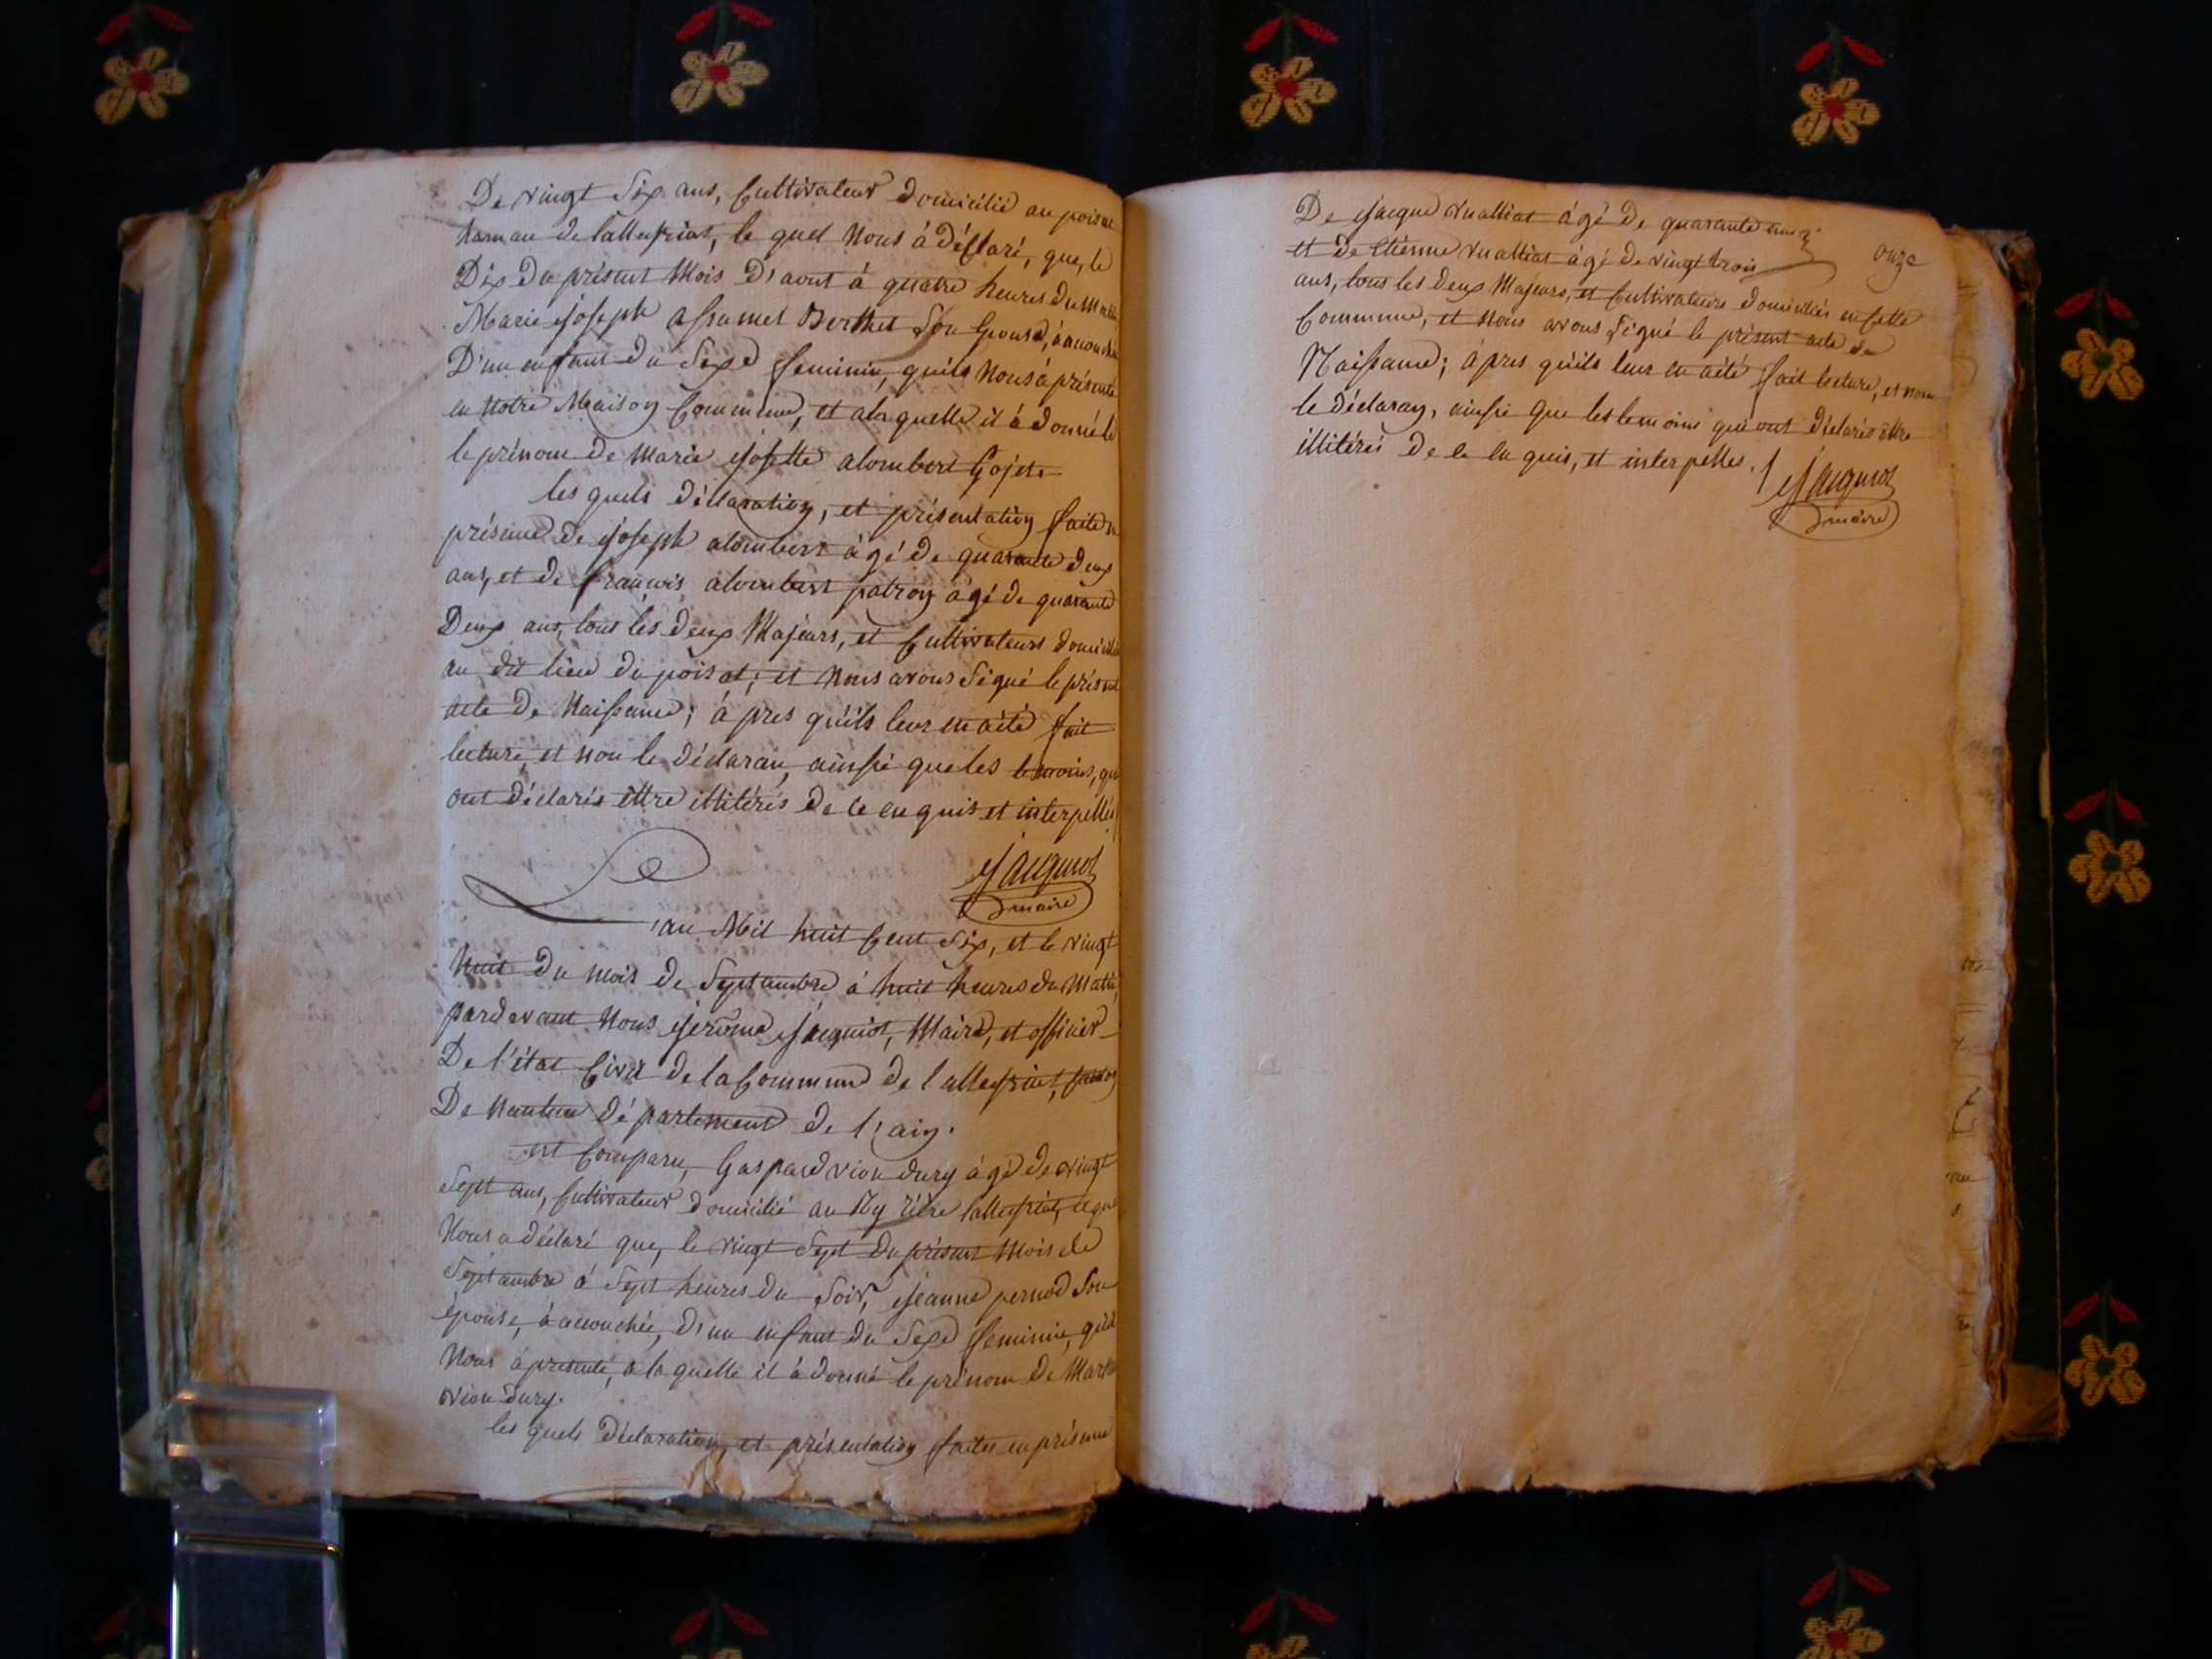 De vingt Six ans, Cultivateur domicilié au poisat
hamau de lalleyriat, le quel Nous à déclaré, que, le
Dix du présent Mois d'aout à quatre heures du Matin
Marie joseph assumel Berthet Son Epouse, à accouchée
D'un enfant du Sexe feminin, qu'ils Nous à présenté
en Notre Maison Commune, et alaquelle il à donné le
le prénom de Marie josette alombert Gojet.
les quels déclaration, et présentation faite en
présence de joseph alombert âgé de quarante deux
ans, et de francois alombert patron âgé de quarante
Deux ans, tous les deux Majeurs, et Cultivateurs domicilié
au dit lieu du poisat; et Nous avons Signé le présent
acte de Naissance; à pres qu'ils leur en aété fait
lecture, et non le déclaran, ainssi que les temoins, qui
ont déclarés êttre illitérés de ce en quis et interpellés
Jacquiot
maire
l'an Mil huit Cent Six, et le vingt
huit du mois de Septambre à huit heures du Matin
pardevant Nous jerôme jacquiot, Maire, et officier
De l'état Civil de la Commune de lalleyriat, canton
De nantua département de l'ain.
est Comparu, Gaspard vion dury âgé de vingt
Sept ans, Cultivateur domicilié au Ry riére lalleyriat, le quel
Nous a déclaré que, le vingt Sept du présent Mois de
Septambre à Sept heures du Soir, jeanne pernod Son
épouse, à accouchée, d'un enfant du Sexe feminin, qu'il
Nous à présenté, a la quelle il à donné le prénom de
vion dury.
les quels déclaration, et présentation faites en présence
onze
De jacque vualliat âgé de quarante
et de Etienne vualliat âgé de vingt trois
ans, tous les deux Majeurs, et Cultivateurs domiciliés en Cette
Commune, et Nous avons Signé le présent acte de
Naissance; à pres qu'ils leur en aété fait lecture, et non
le déclaran, ainssi que les temoins qui ont déclarés êttre
illitérés de ce en quis, et interpellés.
Jacquiot
maire